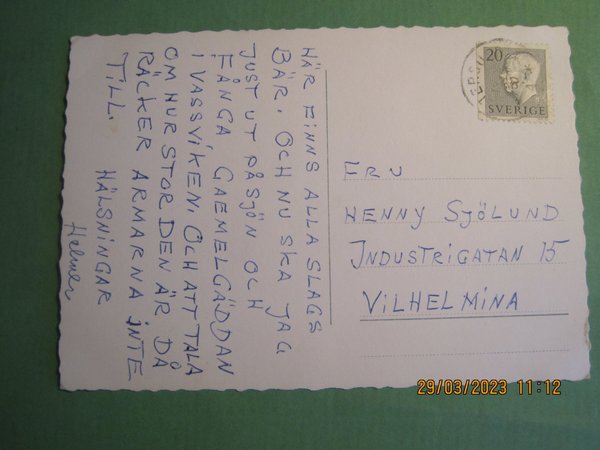 HÄR FINNS ALLA SLAGS
BÄR. OCH NU SKA JAG
JUST UT PÅ SJÖN OCH
FÅNGA GAEMELGÄDDAN
I VASSVIKEN, OCH ATT TALA
OM HUR STOR DEN ÄR DÅ
RÄCKER ARMARNA INTE
TILL.
HÄLSNINGAR
Helmer
20
SVERIGE
FRU
HENNY SJÖLUND
INDUSTRIGATAN 15
VILHELMINA
29/03/2023 11:12